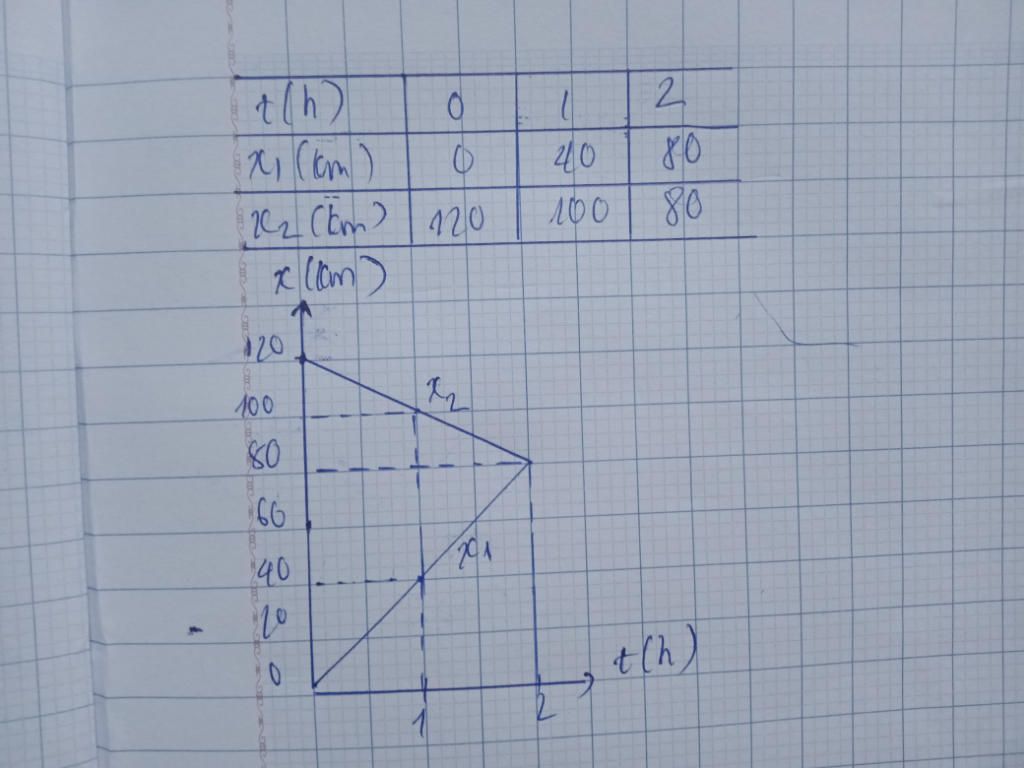 t(h) 0 1 2
x1 (km) 0 40 80
x2 (km) 120 100 80
x(km)
120
x2
100
80
60
x1
40
20
t(h)
0
1 2